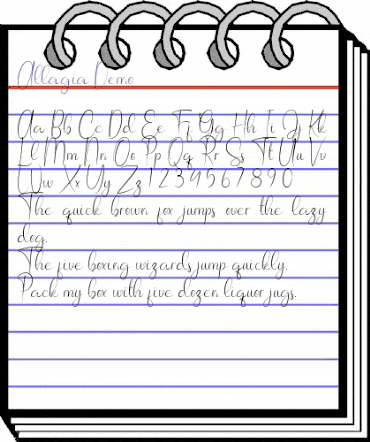 Allagia Demo
Aa Bb Cc Dd Ee Ff Gg Hh Ii Jj Kk
Ll Mm Nn Oo Pp Qq Rr Ss Tt Uu Vv
Ww Xx Yy Zz 1 2 3 4 5 6 7 8 9 0
The quick brown fox jumps over the lazy
dog.
The five boxing wizards jump quickly.
Pack my box with five dozen liquor jugs.